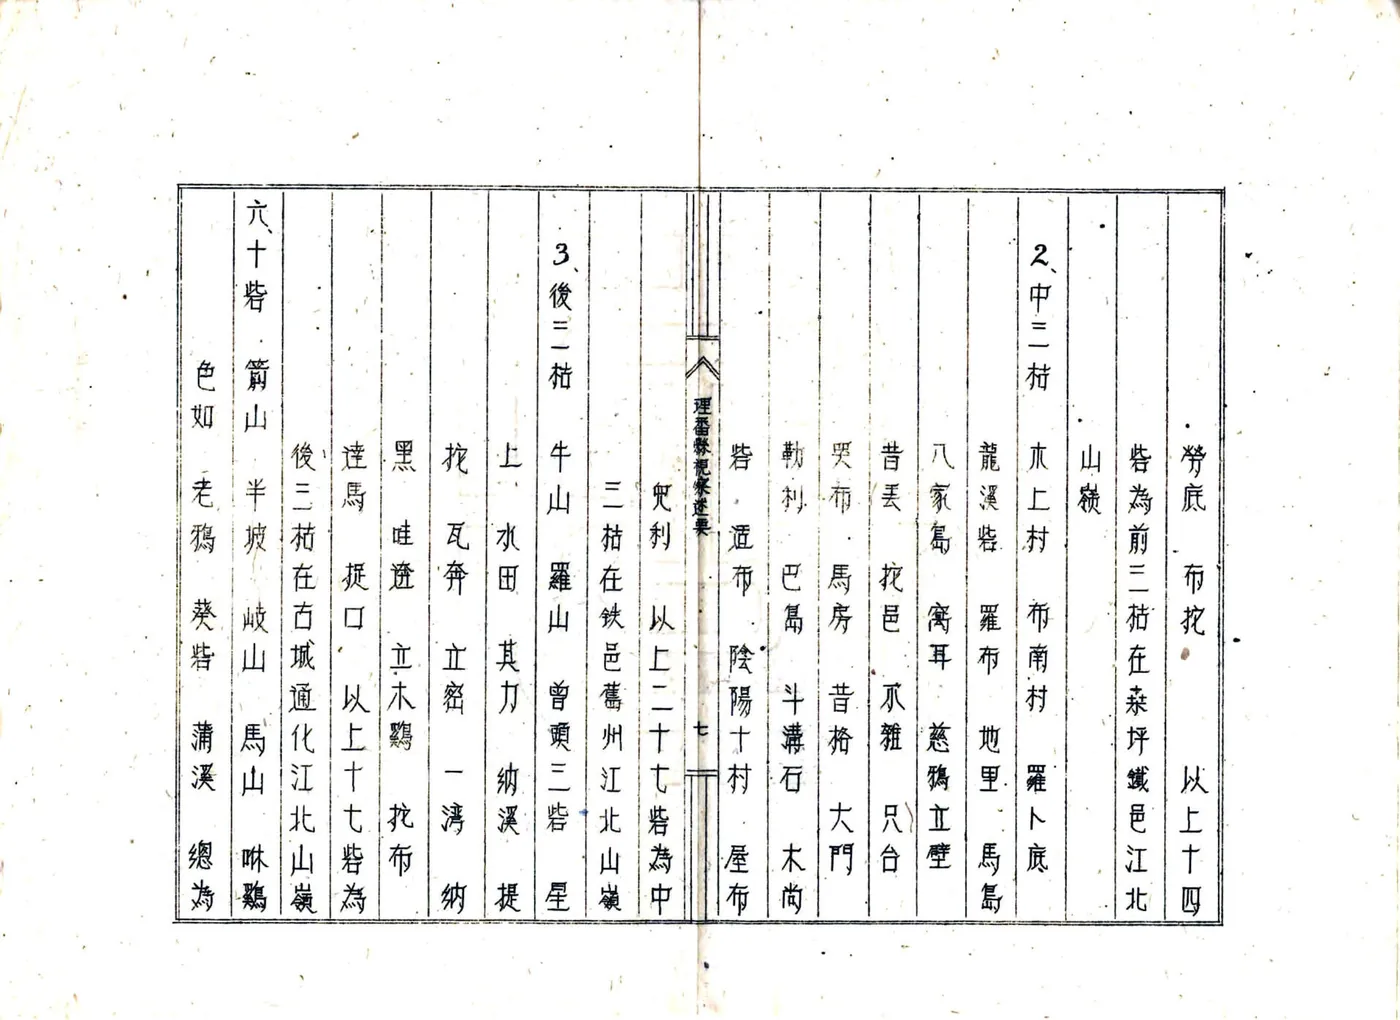 勞底　布挖　　　以上十四
砦為前三枯在桑坪鐵邑江北
山嶺
2、中三枯　木上村　布南村　羅卜底
龍溪砦　羅布　地里　馬島
八家島　窩耳　慈鴉立壁
昔丟　挖邑　不雜　只台
哭布　馬房　昔格　大門
勒利　巴島　斗溝石　木尚
砦　道布　陰陽十村　屋布
理番縣視察述要
七
兜利　以上二十七砦為中
三枯在鉄邑舊州江北山嶺
3、後三枯　牛山　羅山　曾頭三砦　星
上　水田　其力　納溪　提
挖　瓦奔　立密　一灣　納
黑　哇遼　立木鷄　挖布
達馬　提口　以上十七砦為
後三枯在古城通化江北山嶺
六、十砦　箭山　半坡　岐山　馬山　咻鷄
色如　老鴉　葵砦　蒲溪　總為